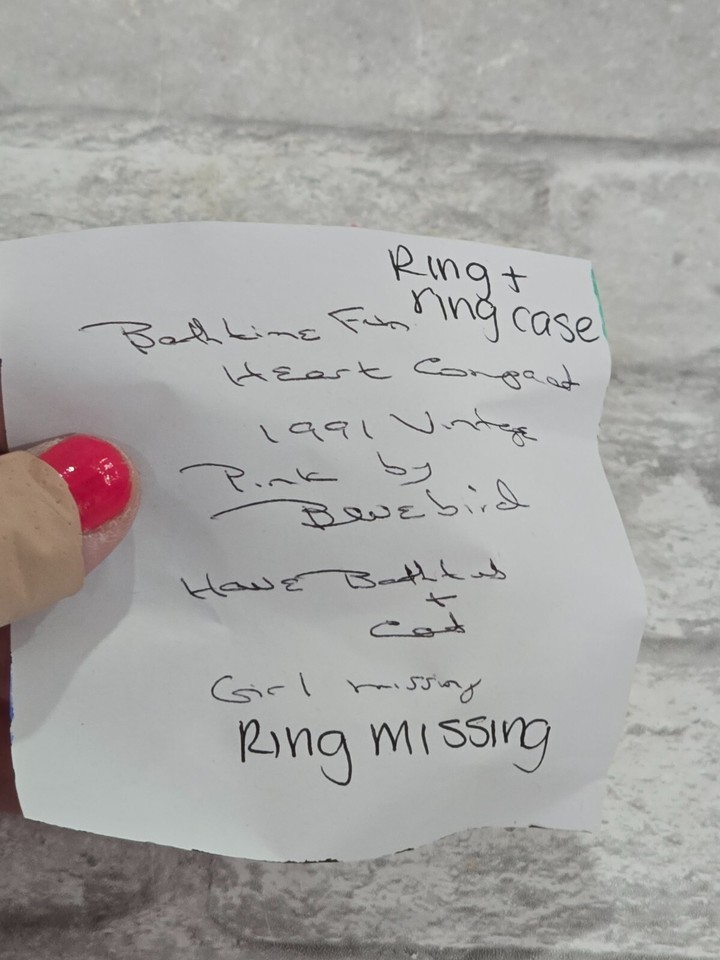 Ring +
ring case
Bathtime Fun
Heart Compact
1991 Vintage
Pink by
Bluebird
Have Bathtub
+
Cat
Girl missing
Ring missing